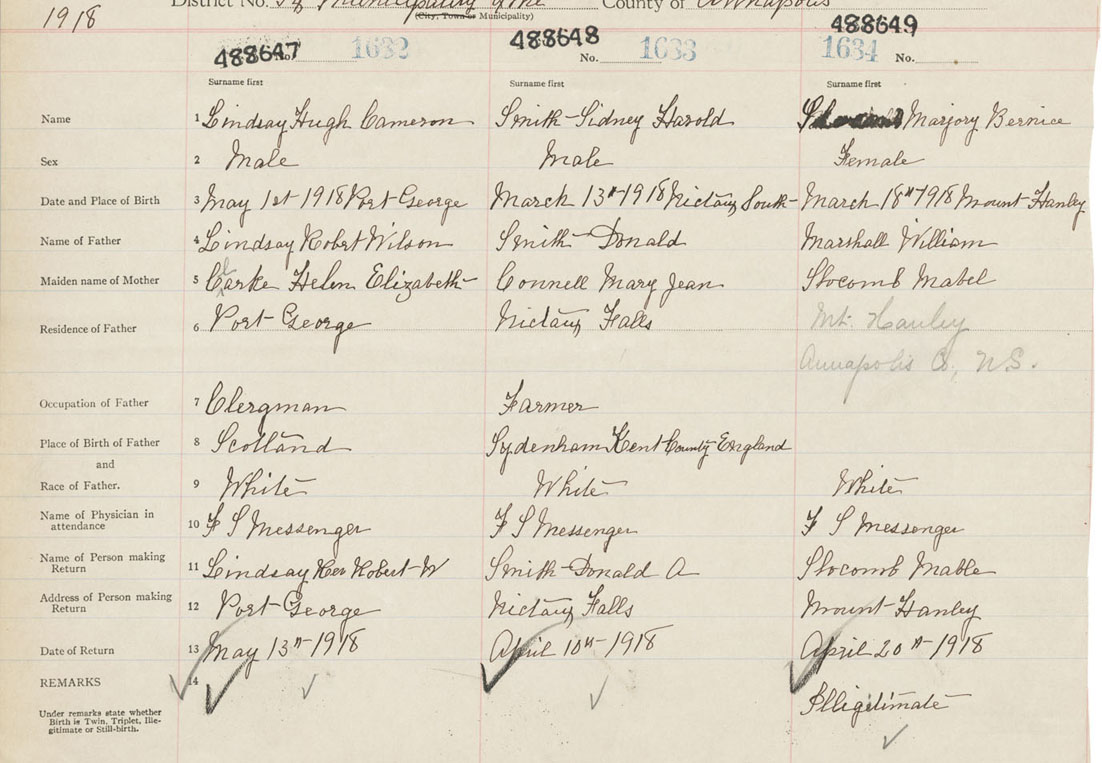 1918
District No. Municipality County of Annapolis
(City, Town or Municipality)
488647 No. 1632 488648 No. 1633 488649 1634 No.
Surname first Surname first Surname first
Name 1 Lindsay Hugh Cameron Smith Sidney Harold Marjory Bernice
Sex 2 Male Male Female
Date and Place of Birth 3 May 1st 1918 Port George March 13th 1918 Nictaux South March 18th 1918 Mount Hanley
Name of Father 4 Lindsay Robert Wilson Smith Donald Marshall William
Maiden name of Mother 5 Clarke Helen Elizabeth Connell Mary Jean Slocomb Mabel
Residence of Father 6 Port George Nictaux Falls Mt. Hanley
Annapolis Co, N.S.
Occupation of Father 7 Clergman Farmer
Place of Birth of Father 8 Scotland Sydenham Kent County England
and
Race of Father. 9 White White White
Name of Physician in
attendance 10 F S Messenger F S Messenger F S Messenger
Name of Person making
Return 11 Lindsay Rev Robert W Smith Donald A Slocomb Mable
Address of Person making
Return 12 Port George Nictaux Falls Mount Hanley
Date of Return 13 May 13th 1918 April 10th 1918 April 20th 1918
REMARKS 14
Under remarks state whether
Birth is Twin, Triplet, Ille-
gitimate or Still-birth.
Illigitimate